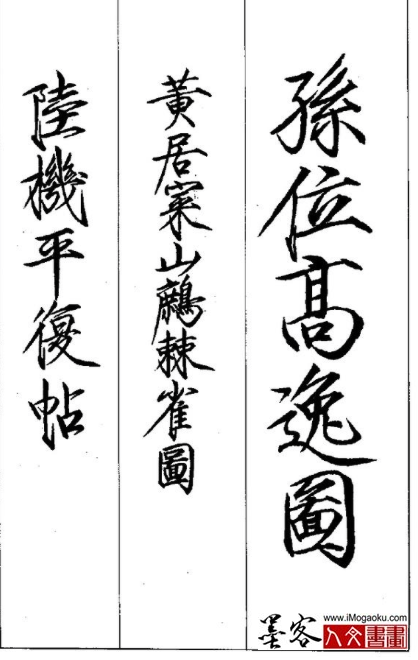 孫位高逸圖
黃居寀山鷓棘雀圖
陸機平復帖
墨客
www.iMogaoku.com
人文書畫